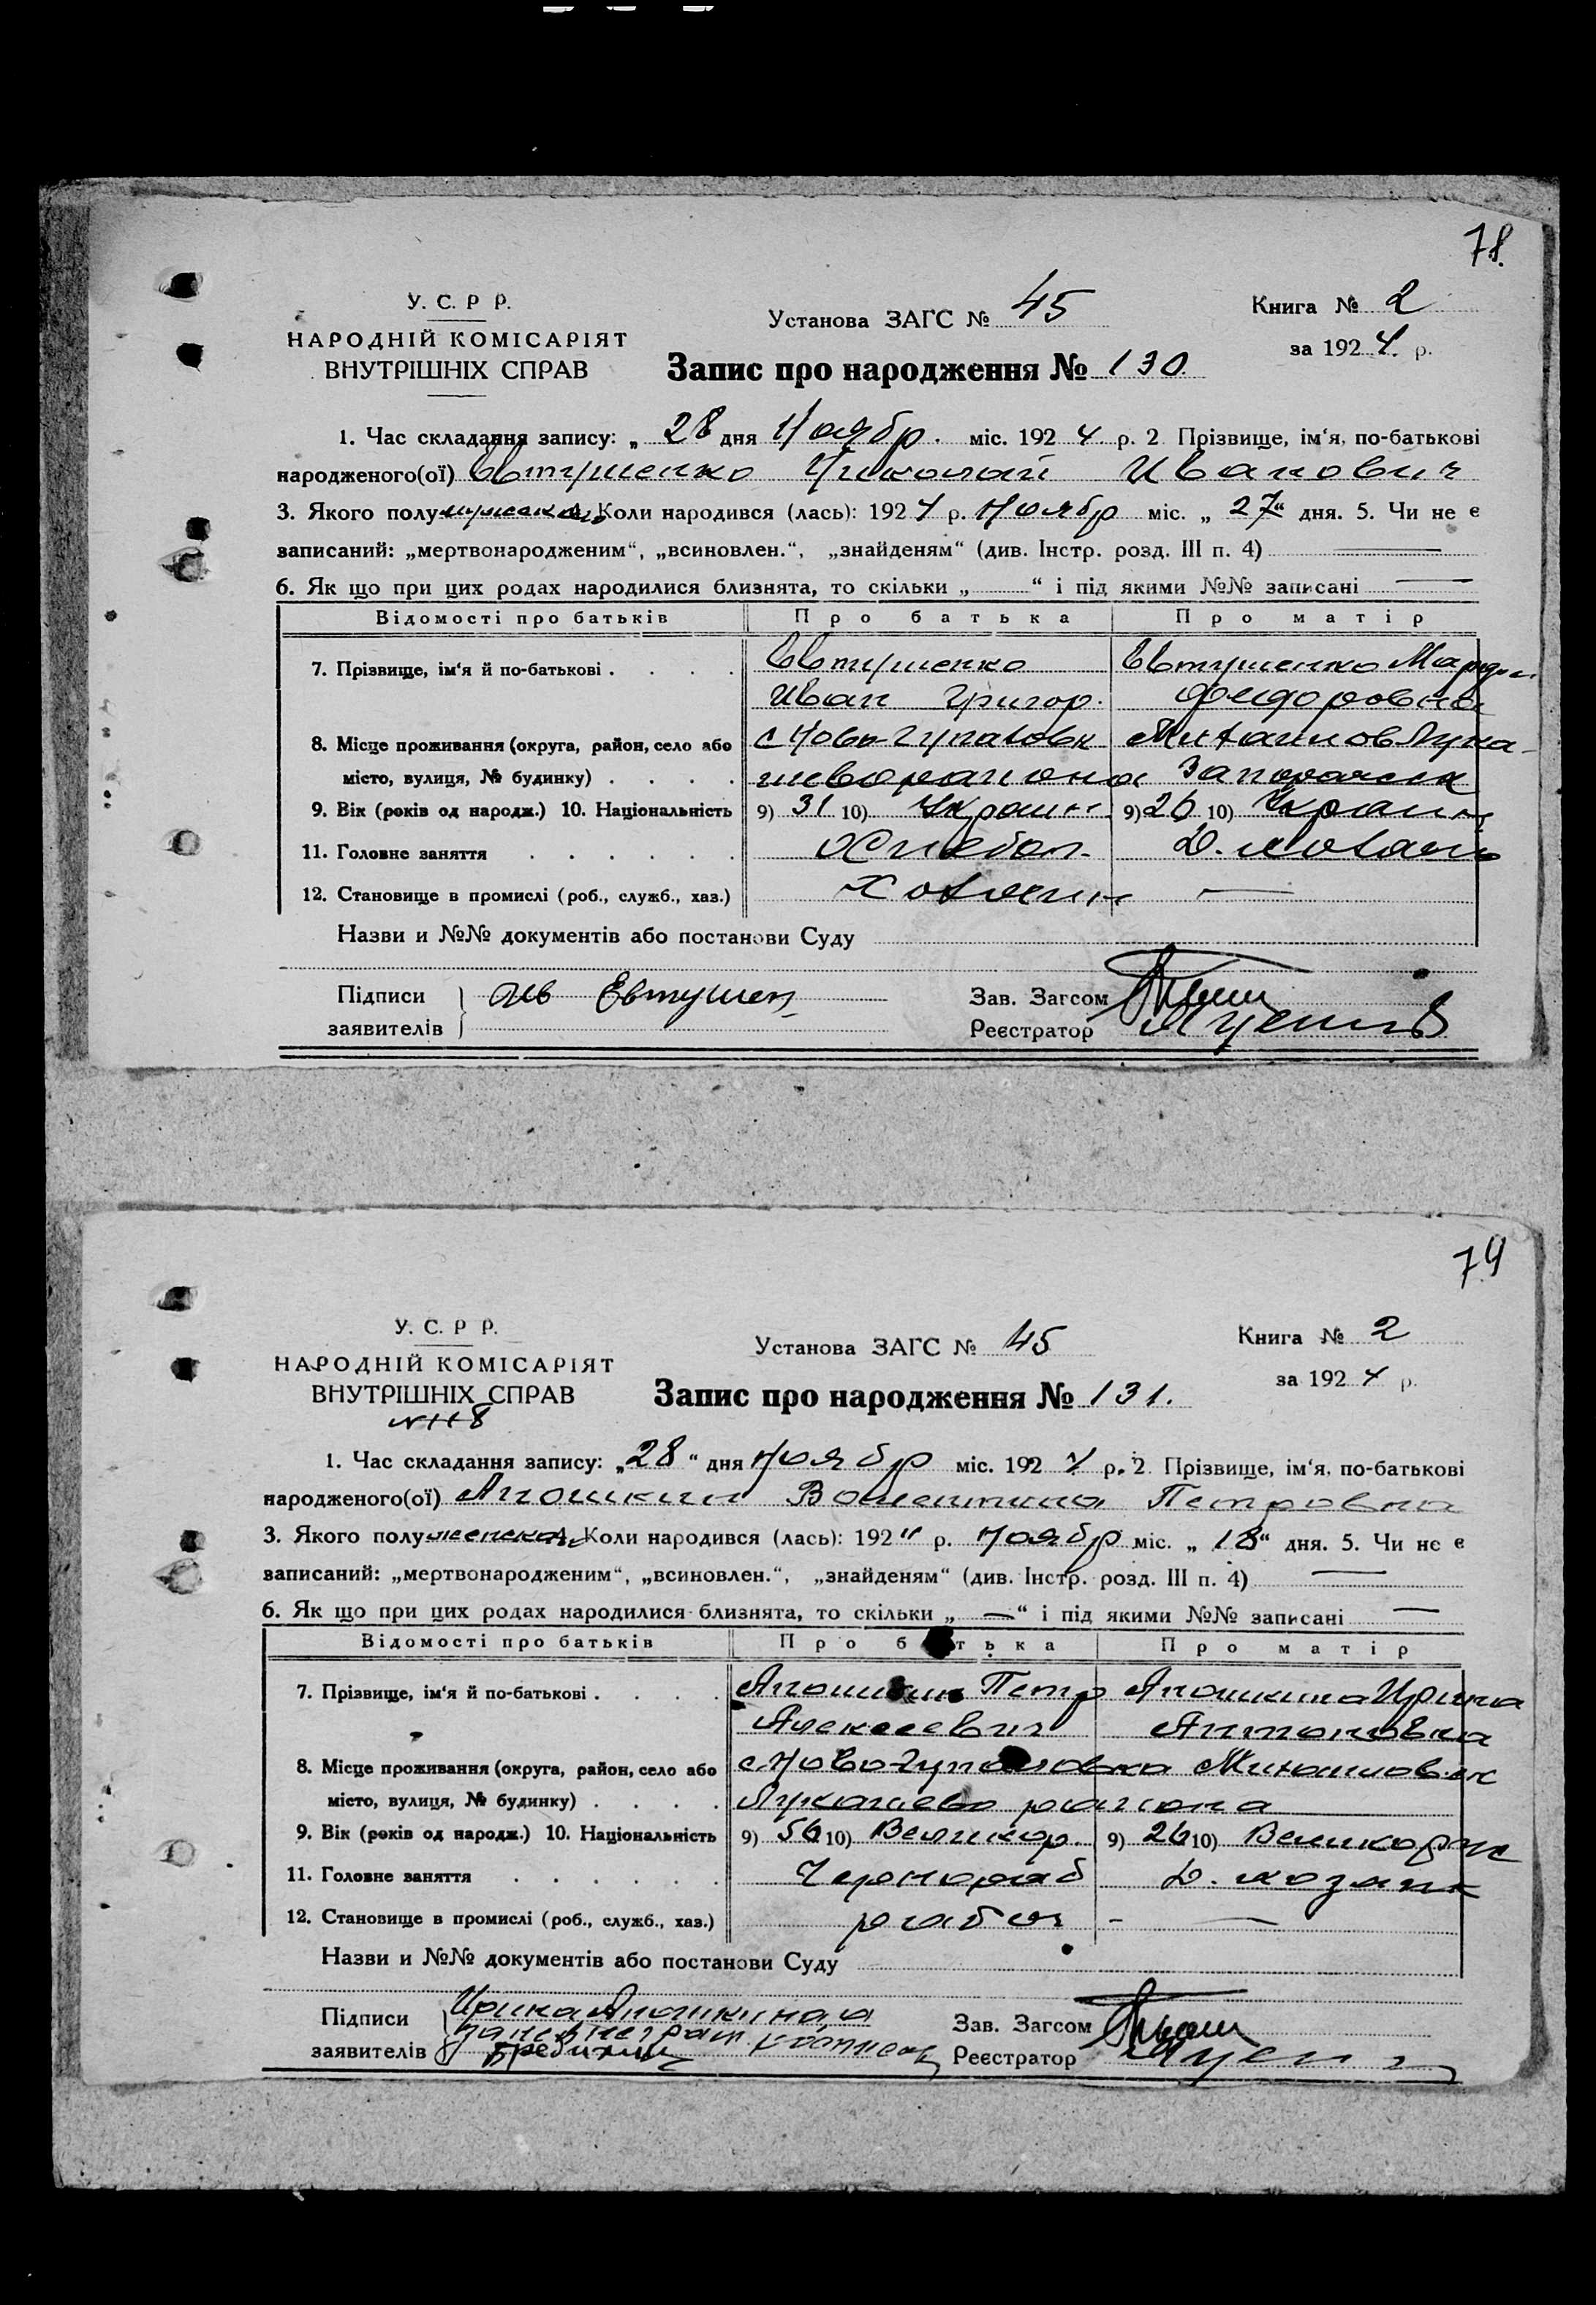 78.
У. С. Р Р.
НАРОДНІЙ КОМІСАРІЯТ
ВНУТРІШНІХ СПРАВ
Установа ЗАГС № 45
Книга № 2
за 1924 р.
Запис про народження № 130
1. Час складання запису: „ 28 дня Ноябр. міс. 1924 р. 2 Прізвище, ім'я, по-батькові
народженого(ої) Евтушенко Николай Иванович
3. Якого полу 4. Коли народився (лась): 1924 р. Ноябр міс. „ 27 “ дня. 5. Чи не є
записаний: „мертвонародженим“, „всиновлен.“, „знайденям“ (див. Інстр. розд. III п. 4)
6. Як що при цих родах народилися близнята, то скільки „ “ і під якими №№ записані
Відомості про батьків Про батька Про матір
7. Прізвище, ім'я й по-батькові . . . . Евтушенко Евтушенко
Иван Григор. Федоровна
8. Місце проживання (округа, район, село або с Ново-Гупаловк Михайлов Лука-
місто, вулиця, № будинку) . . . . шеворайона Запорожск
9. Вік (років од народж.) 10. Національність 9) 31 10) Украин 9) 26 10) Украин
11. Головне заняття . . . . . . Хлебоп. Д. хозяй
12. Становище в промислі (роб., служб., хаз.) Хозяин —
Назви и №№ документів або постанови Суду
Підписи заявителів Ив Евтушен
Зав. Загсом
Реєстратор
79
У. С. Р Р.
НАРОДНІЙ КОМІСАРІЯТ
ВНУТРІШНІХ СПРАВ
Установа ЗАГС № 45
Книга № 2
за 1924 р.
Запис про народження № 131.
1. Час складання запису: „28“ дня Ноябр міс. 1924 р. 2 Прізвище, ім'я, по-батькові
народженого(ої) Апошкин Валентина Петровна
3. Якого полу женска 4. Коли народився (лась): 192 р. Ноябр міс. „ 18“ дня. 5. Чи не є
записаний: „мертвонародженим“, „всиновлен.“, „знайденям“ (див. Інстр. розд. III п. 4) —
6. Як що при цих родах народилися близнята, то скільки „ — “ і під якими №№ записані —
Відомості про батьків Про батька Про матір
7. Прізвище, ім'я й по-батькові . . . . Апошкин Петр Апошкина Ирина
Алексеевич Антоновна
8. Місце проживання (округа, район, село або с. Ново-Гупаловка Михайловск
місто, вулиця, № будинку) . . . . Лукашево района
9. Вік (років од народж.) 10. Національність 9) 56 10) Великор. 9) 26 10) Великорж
11. Головне заняття . . . . . . Чернораб Д. хозяик
12. Становище в промислі (роб., служб., хаз.) рабоч —
Назви и №№ документів або постанови Суду
Підписи заявителів Ирина Апошкина, а
за неграм.
Зав. Загсом
Реєстратор